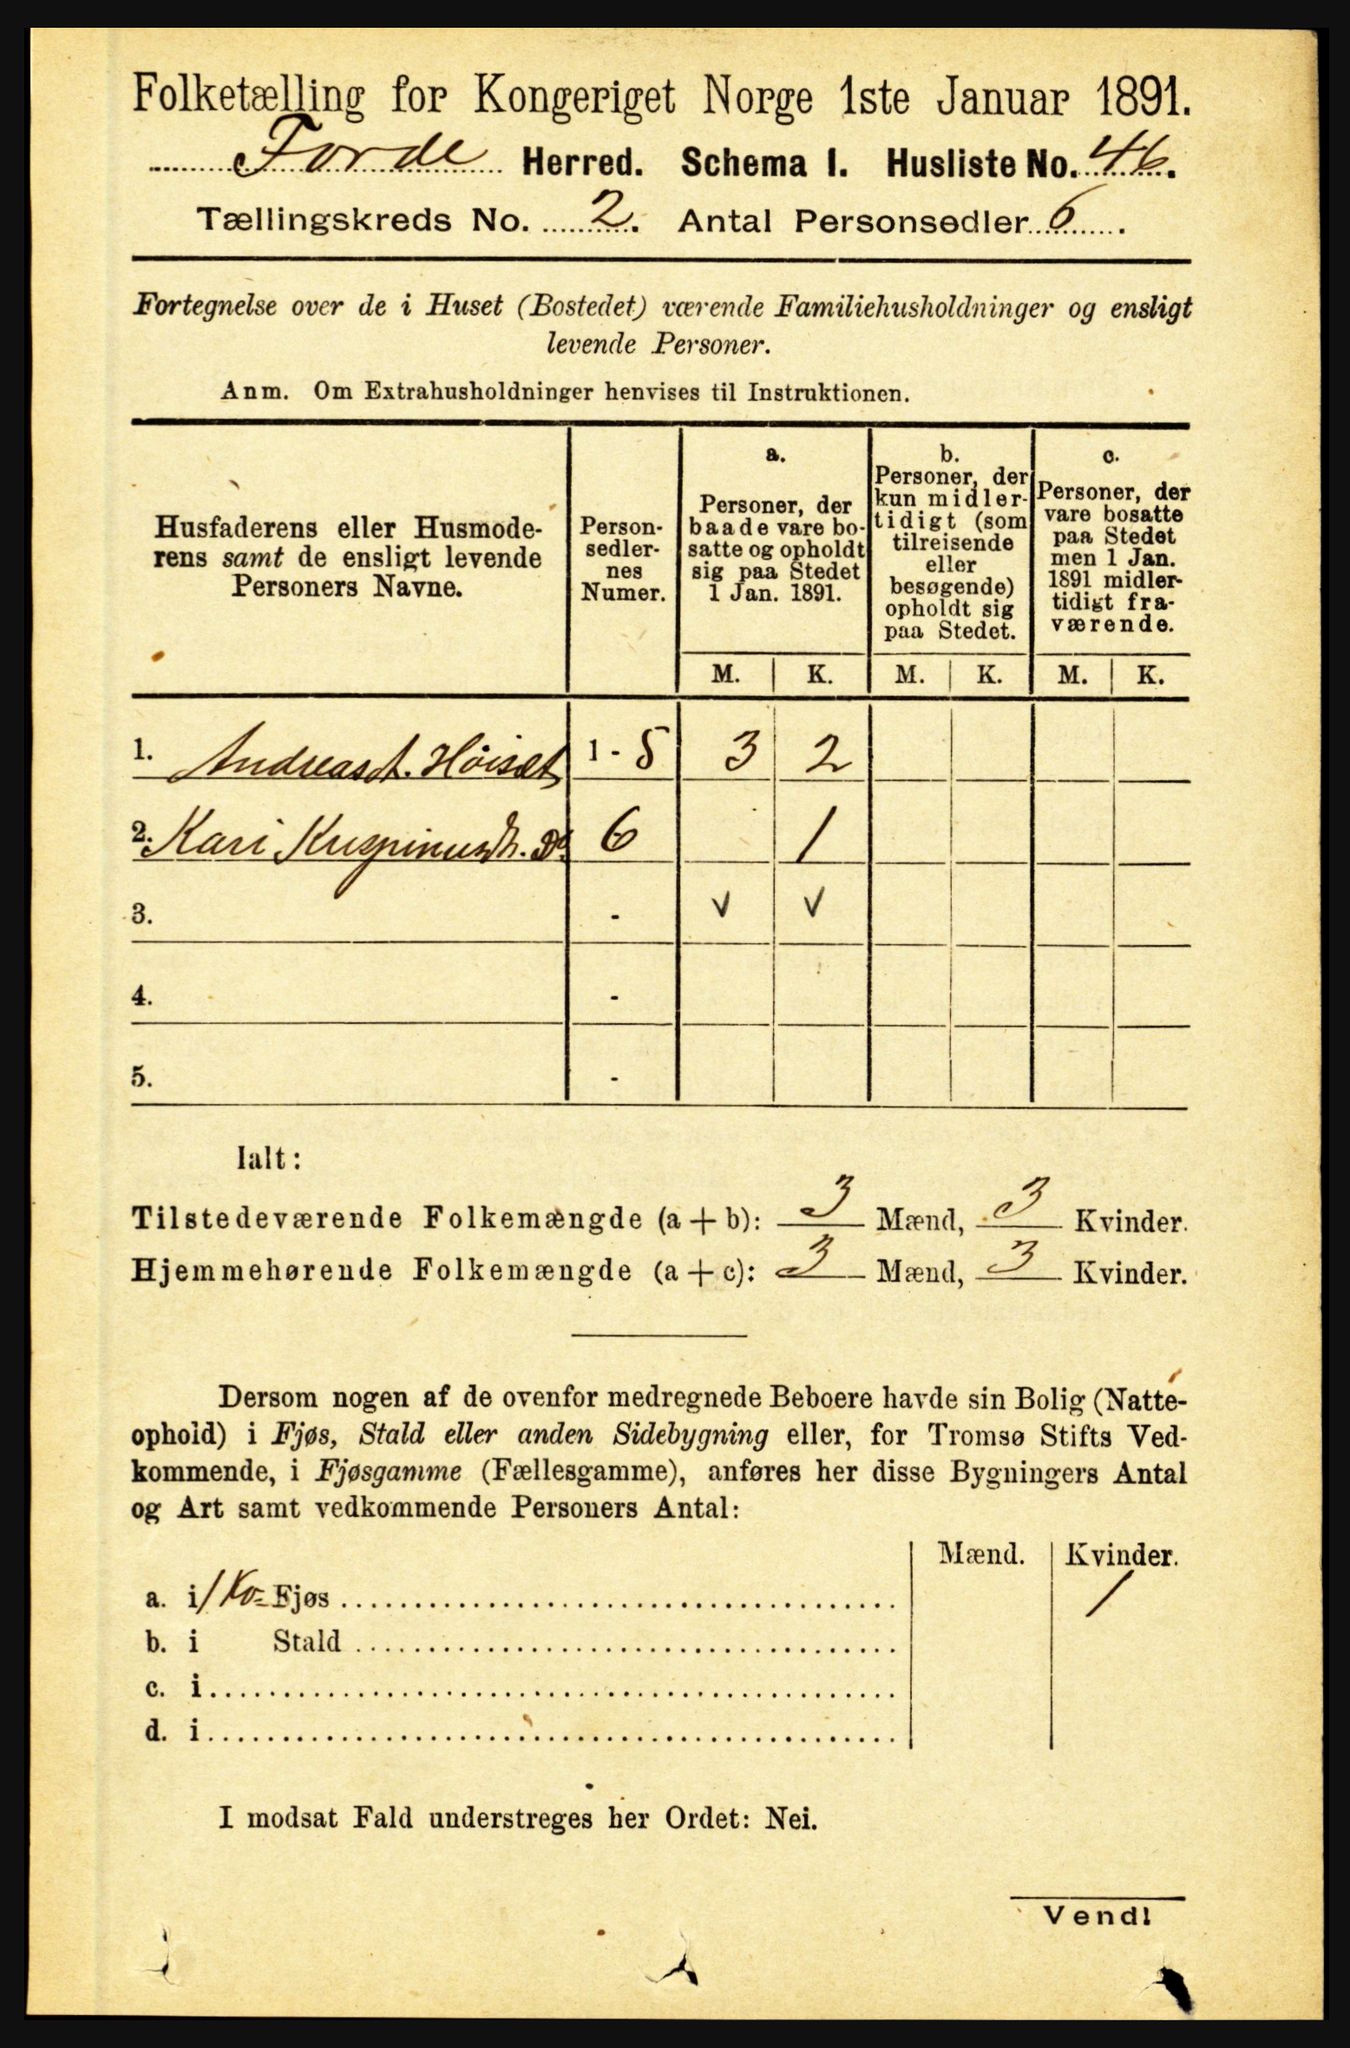 Folketælling for Kongeriget Norge 1ste Januar 1891.
Førde Herred. Schema I. Husliste No. 46.
Tællingskreds No. 2. Antal Personsedler 6.
Fortegnelse over de i Huset (Bostedet) værende Familiehusholdninger og ensligt
levende Personer.
Anm. Om Extrahusholdninger henvises til Instruktionen.
Husfaderens eller Husmode-
rens samt de ensligt levende
Personers Navne.
Person-
sedler-
nes
Numer.
a.
Personer, der
baade vare bo-
satte og opholdt
sig paa Stedet
1 Jan. 1891.
b.
Personer, der
kun midler-
tidigt (som
tilreisende
eller
besøgende)
opholdt sig
paa Stedet.
c.
Personer, der
vare bosatte
paa Stedet
men 1 Jan.
1891 midler-
tidigt fra-
værende.
M. K. M. K. M. K.
1. Andreas A. Høiset 1 - 5 3 2
2. Kari Kuspinusdt. Do 6 1
3. - √ √
4. -
5. -
Ialt:
Tilstedeværende Folkemængde (a + b): 3 Mænd, 3 Kvinder.
Hjemmehørende Folkemængde (a + c): 3 Mænd, 3 Kvinder.
Dersom nogen af de ovenfor medregnede Beboere havde sin Bolig (Natte-
ophold) i Fjøs, Stald eller anden Sidebygning eller, for Tromsø Stifts Ved-
kommende, i Fjøsgamme (Fællesgamme), anføres her disse Bygningers Antal
og Art samt vedkommende Personers Antal:
Mænd. Kvinder.
a. i 1 Ko= Fjøs 1
b. i Stald
c. i
d. i
I modsat Fald understreges her Ordet: Nei.
Vend!